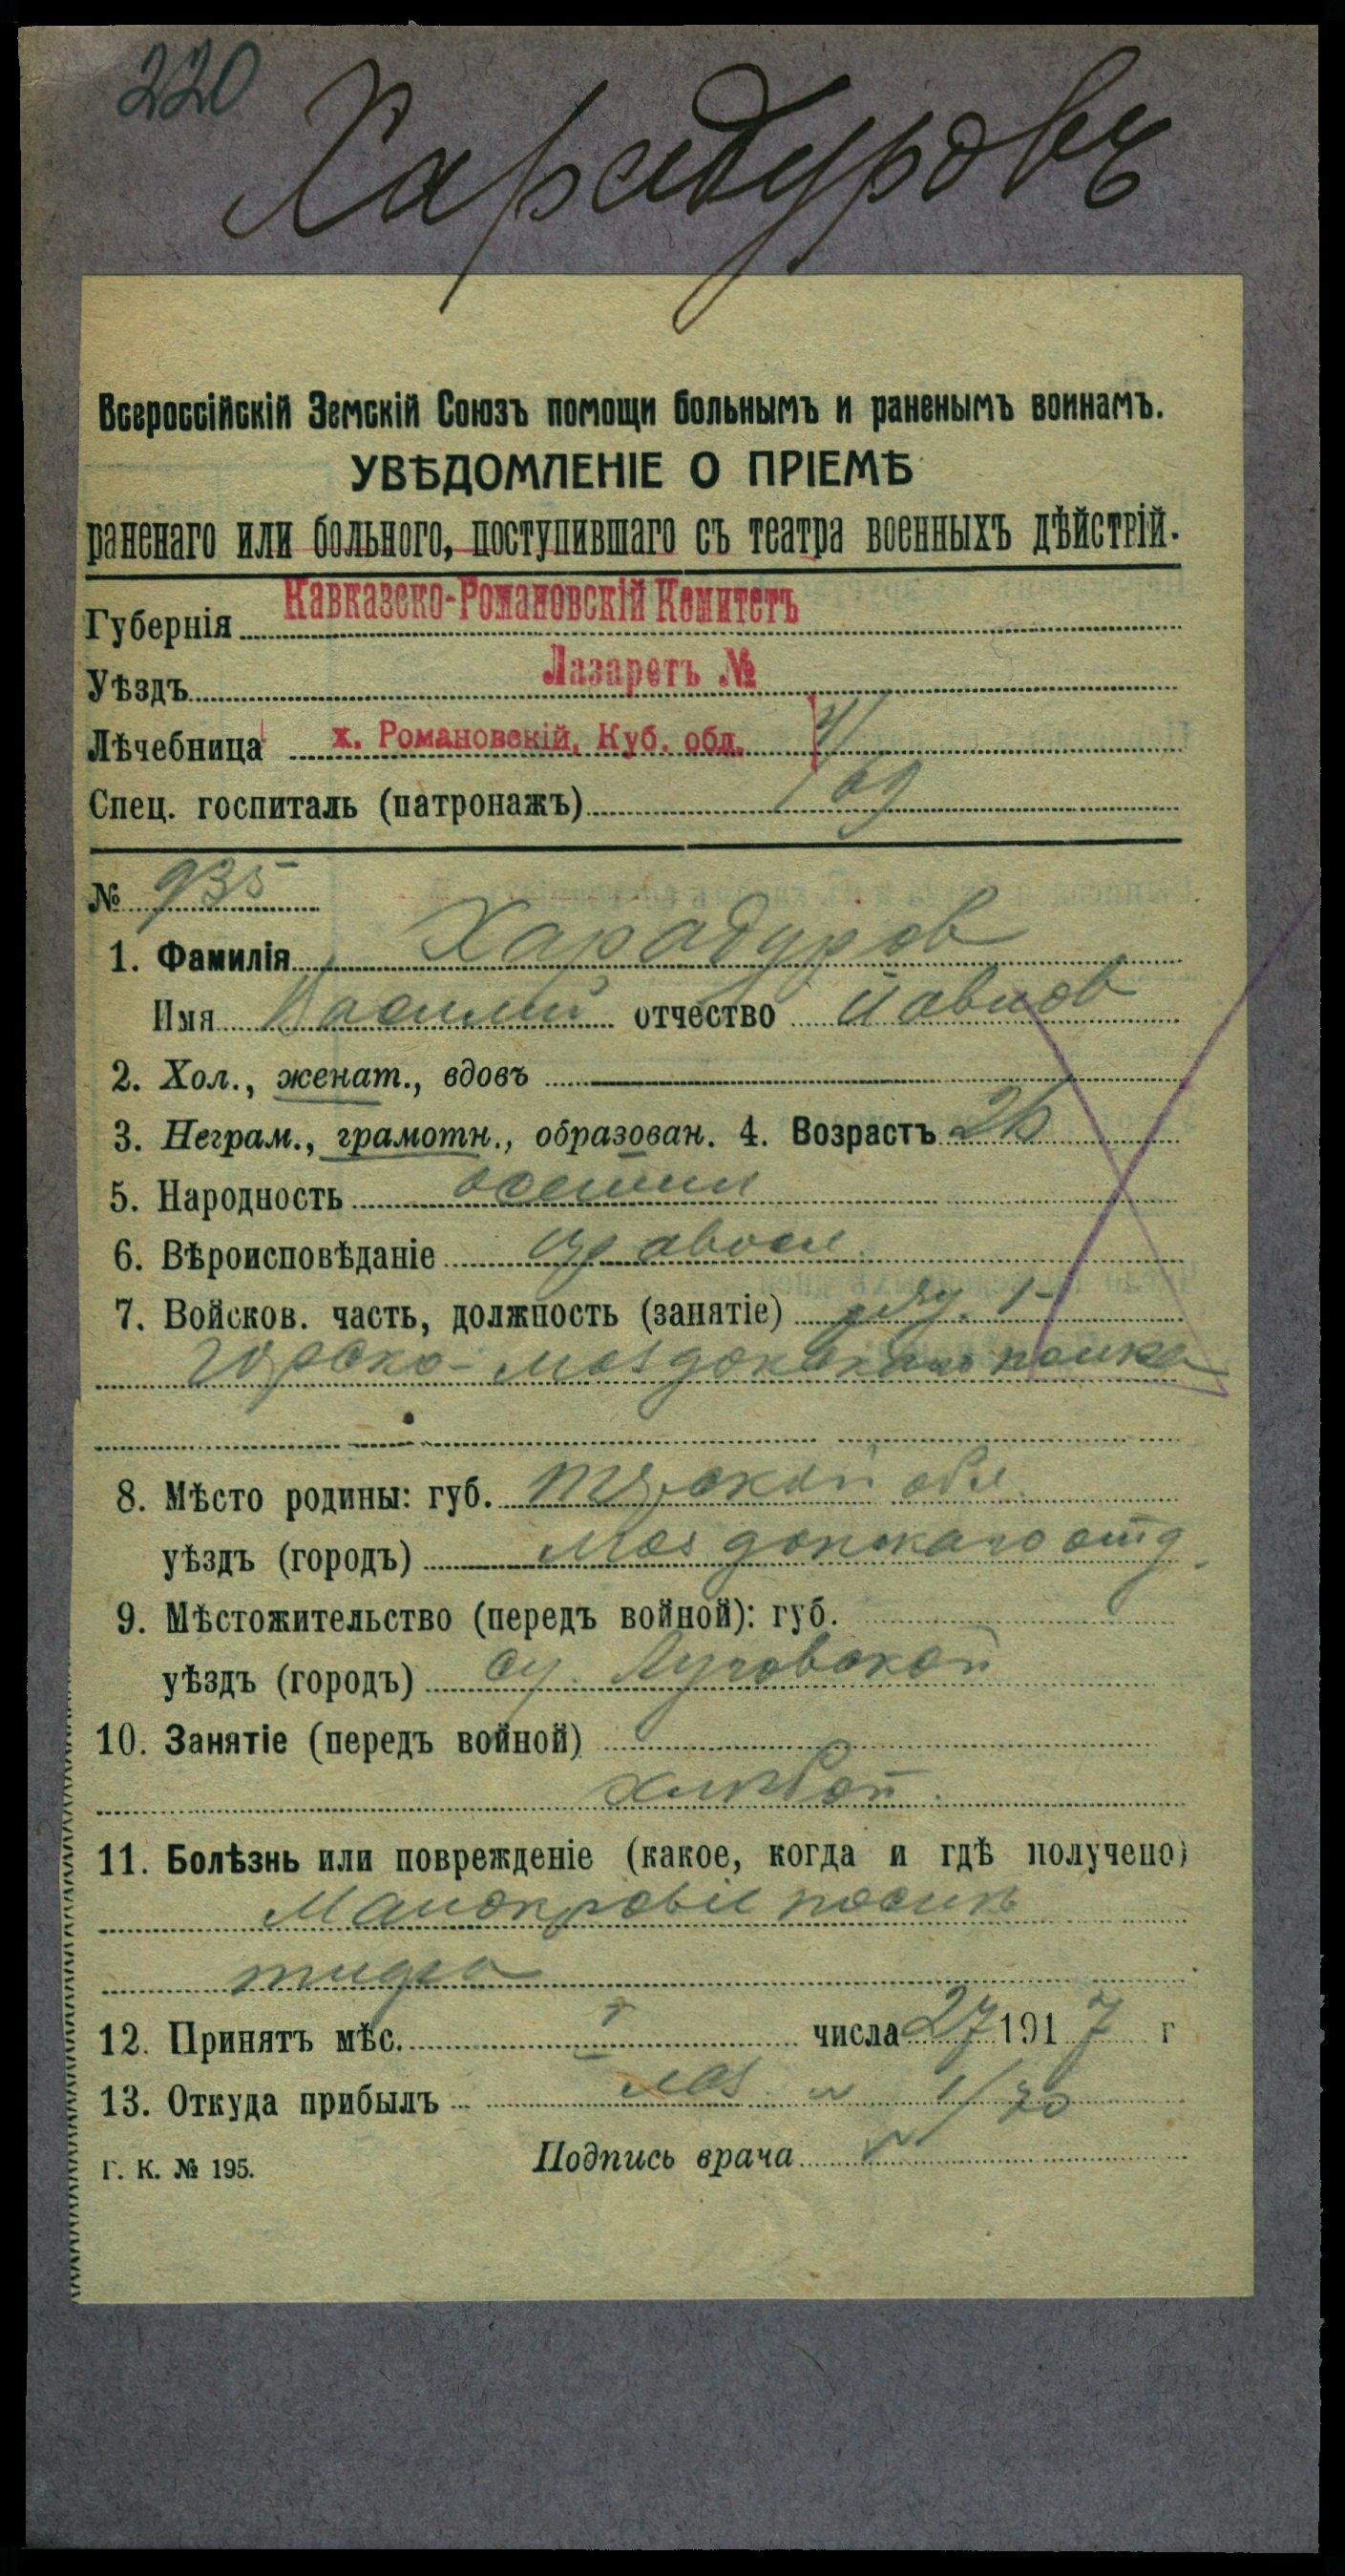 220
Харадуровъ
Всероссійскій Земскій Союзъ помощи больнымъ и раненымъ воинамъ.
УВѢДОМЛЕНІЕ О ПРІЕМѢ
раненаго или больного, поступившаго съ театра военныхъ дѣйствій.
Губернія Кавказско-Романовскій Комитетъ
Уѣздъ Лазаретъ №
Лѣчебница х. Романовскій, Куб. обл.
Спец. госпиталь (патронажъ)
№ 935
1. Фамилія Харадуров
Имя Василий отчество
2. Хол., женат., вдовъ
3. Неграм., грамотн., образован. 4. Возрастъ 26
5. Народность осетин
6. Вѣроисповѣданіеправосл.
7. Войсков. часть, должность (занятіе) 1-
Горско-моздокскаго полка
8. Мѣсто родины: губ. Терской обл.
уѣздъ (городъ) Моздокскаго отд.
9. Мѣстожительство (передъ войной): губ.
уѣздъ (городъ) ст. Луговской
10. Занятіе (передъ войной)
хлебоп.
11. Болѣзнь или поврежденіе (какое, когда и гдѣ получено)
Малокровие после
тифа
12. Принятъ мѣс. числа 27 1917 г
13. Откуда прибылъ
Г. К. № 195. Подпись врача